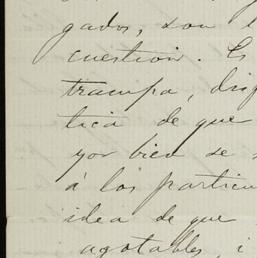 gados, son l
cuestion. Es
trampa, disf
tica de que
yor bien se
á los particu
idea de que
agotables, i